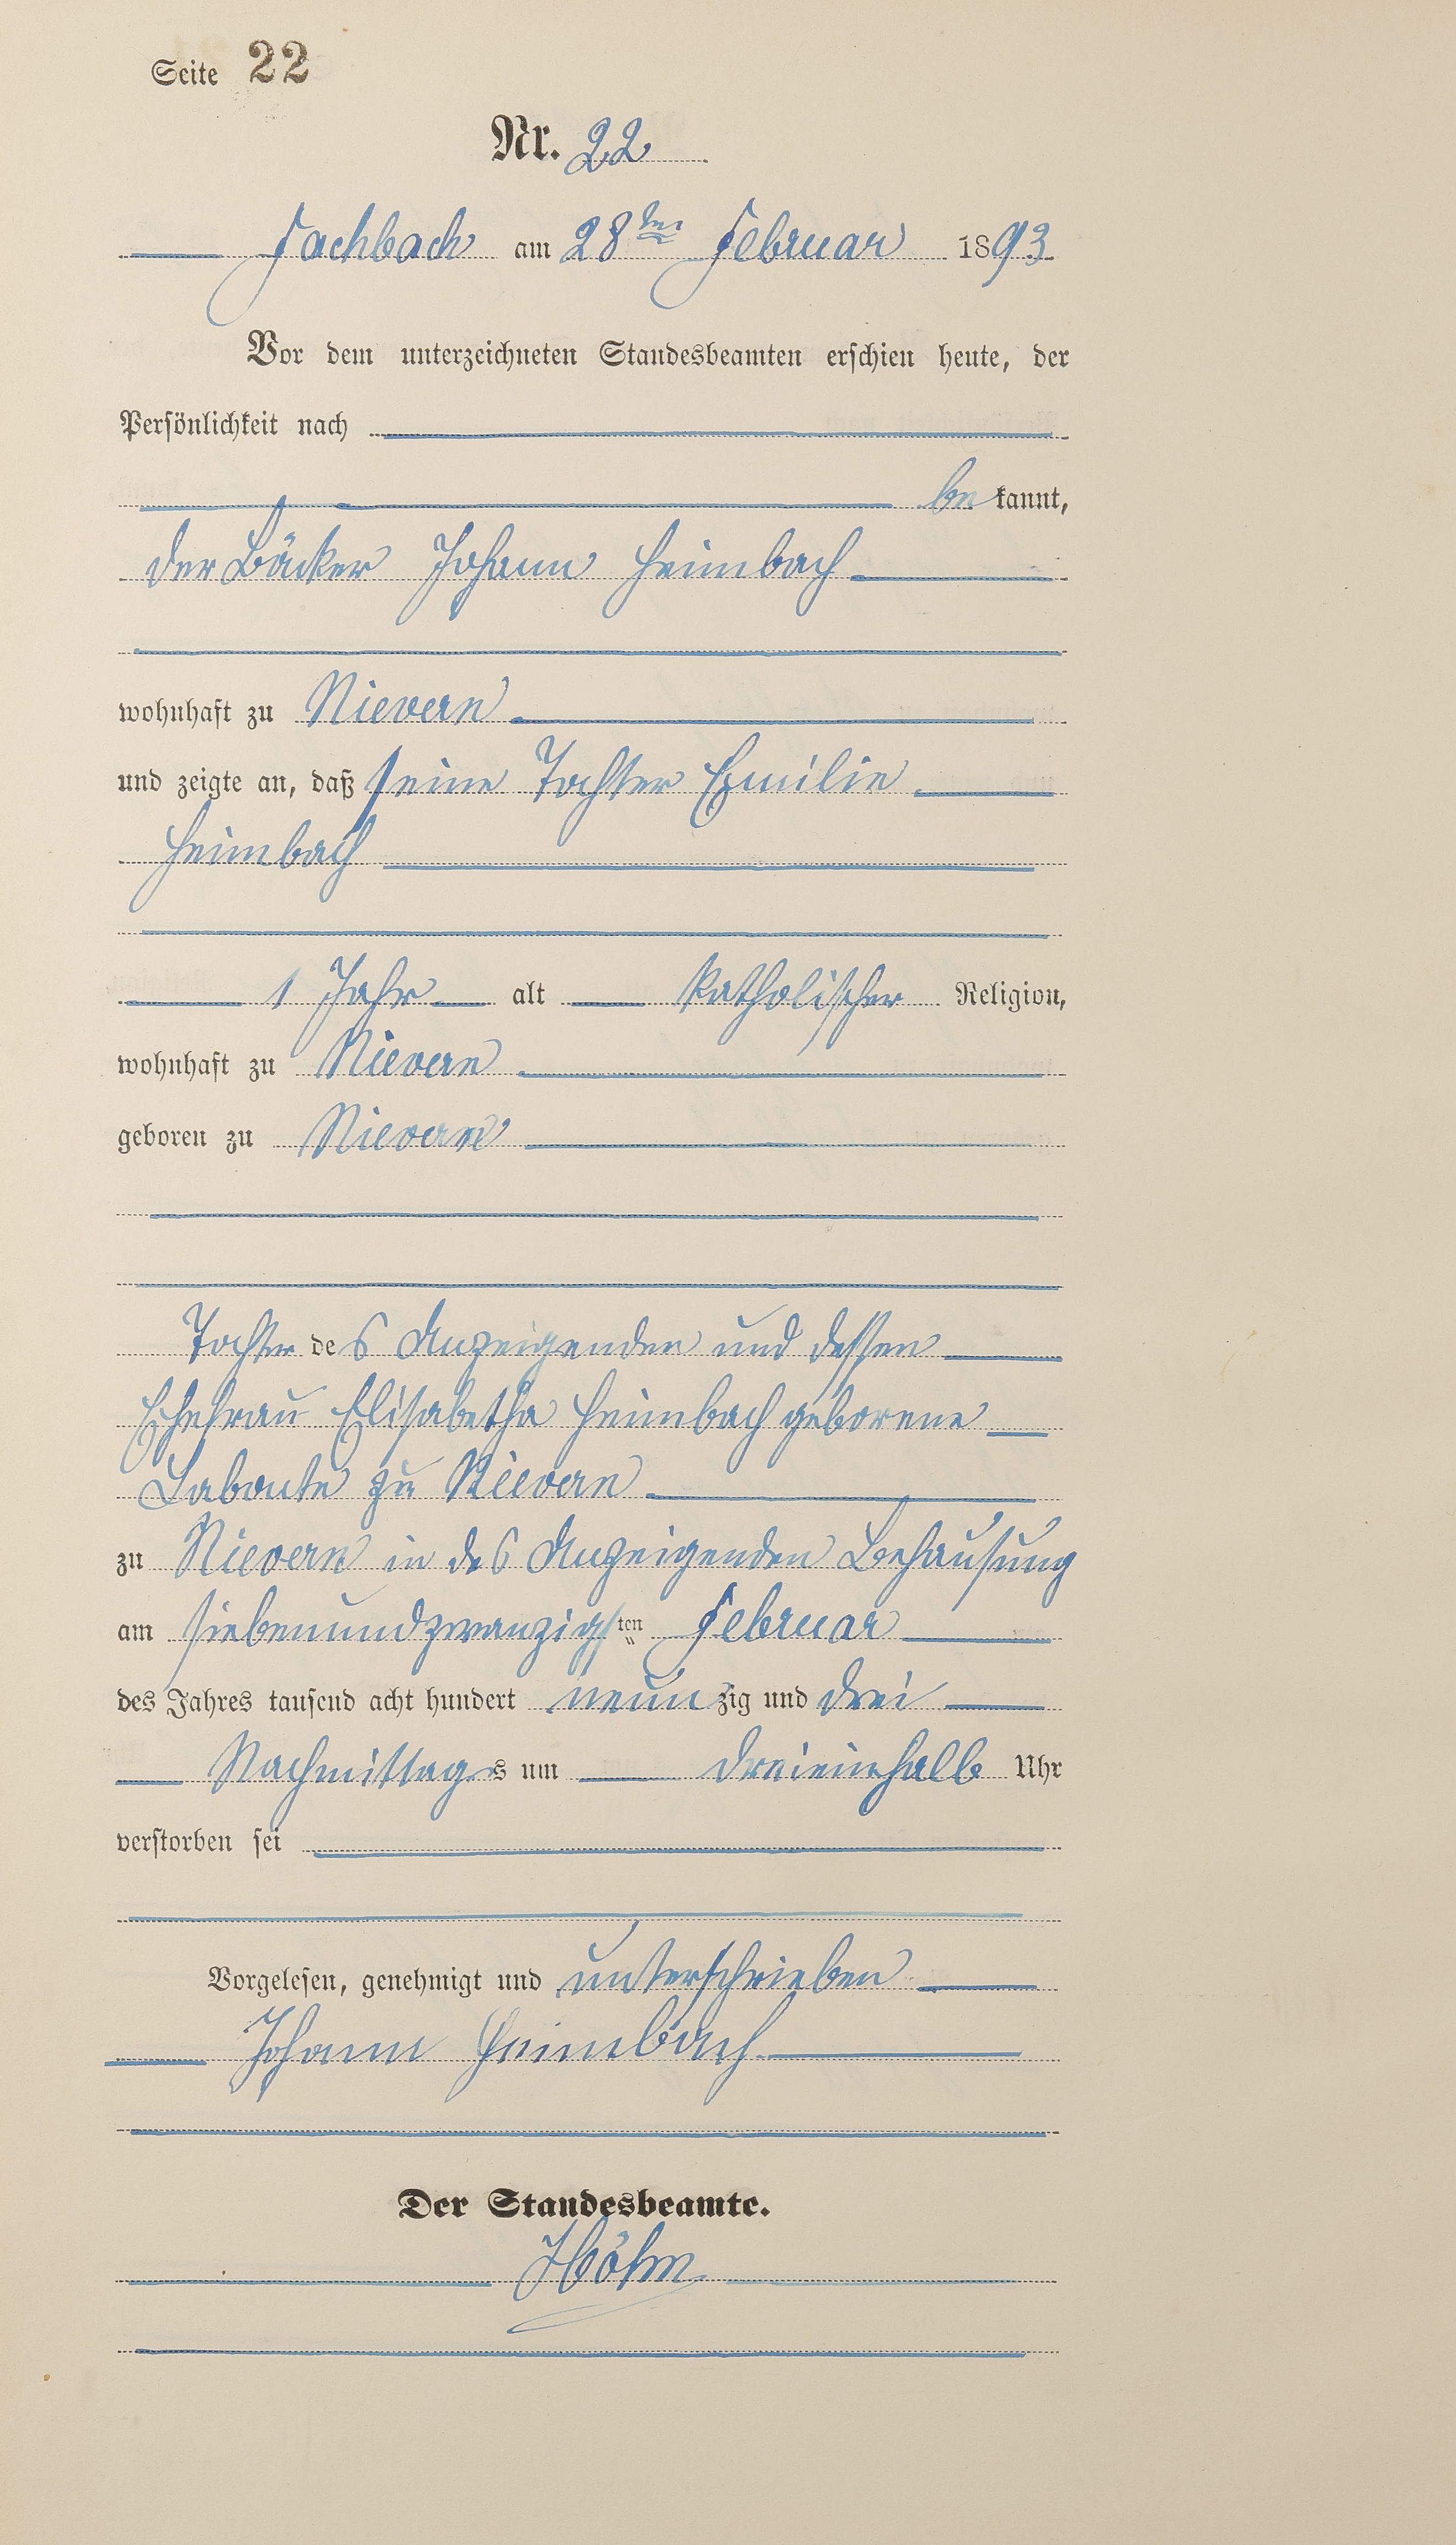 Seite 22
Nr. 22
Fachbach am 28ten Februar 1893
Vor dem unterzeichneten Standesbeamten erschien heute, der
Persönlichkeit nach
bekannt,
der Bäcker Johann Heimbach
wohnhaft zu Nievern
und zeigte an, daß seine Tochter Emilie
Heimbach
1 Jahr alt katholischer Religion,
wohnhaft zu Nievern
geboren zu Nievern
Tochter des Anzeigenden und dessen
Ehefrau Elisabetha Heimbach geborene
Labonte zu Nievern
zu Nievern in des Anzeigenden Behausung
am siebenundzwanzigsten Februar
des Jahres tausend acht hundert neunzig und drei
Nachmittags um dreieinhalb Uhr
verstorben sei
Vorgelesen, genehmigt und unterschrieben
Johann Heimbach
Der Standesbeamte.